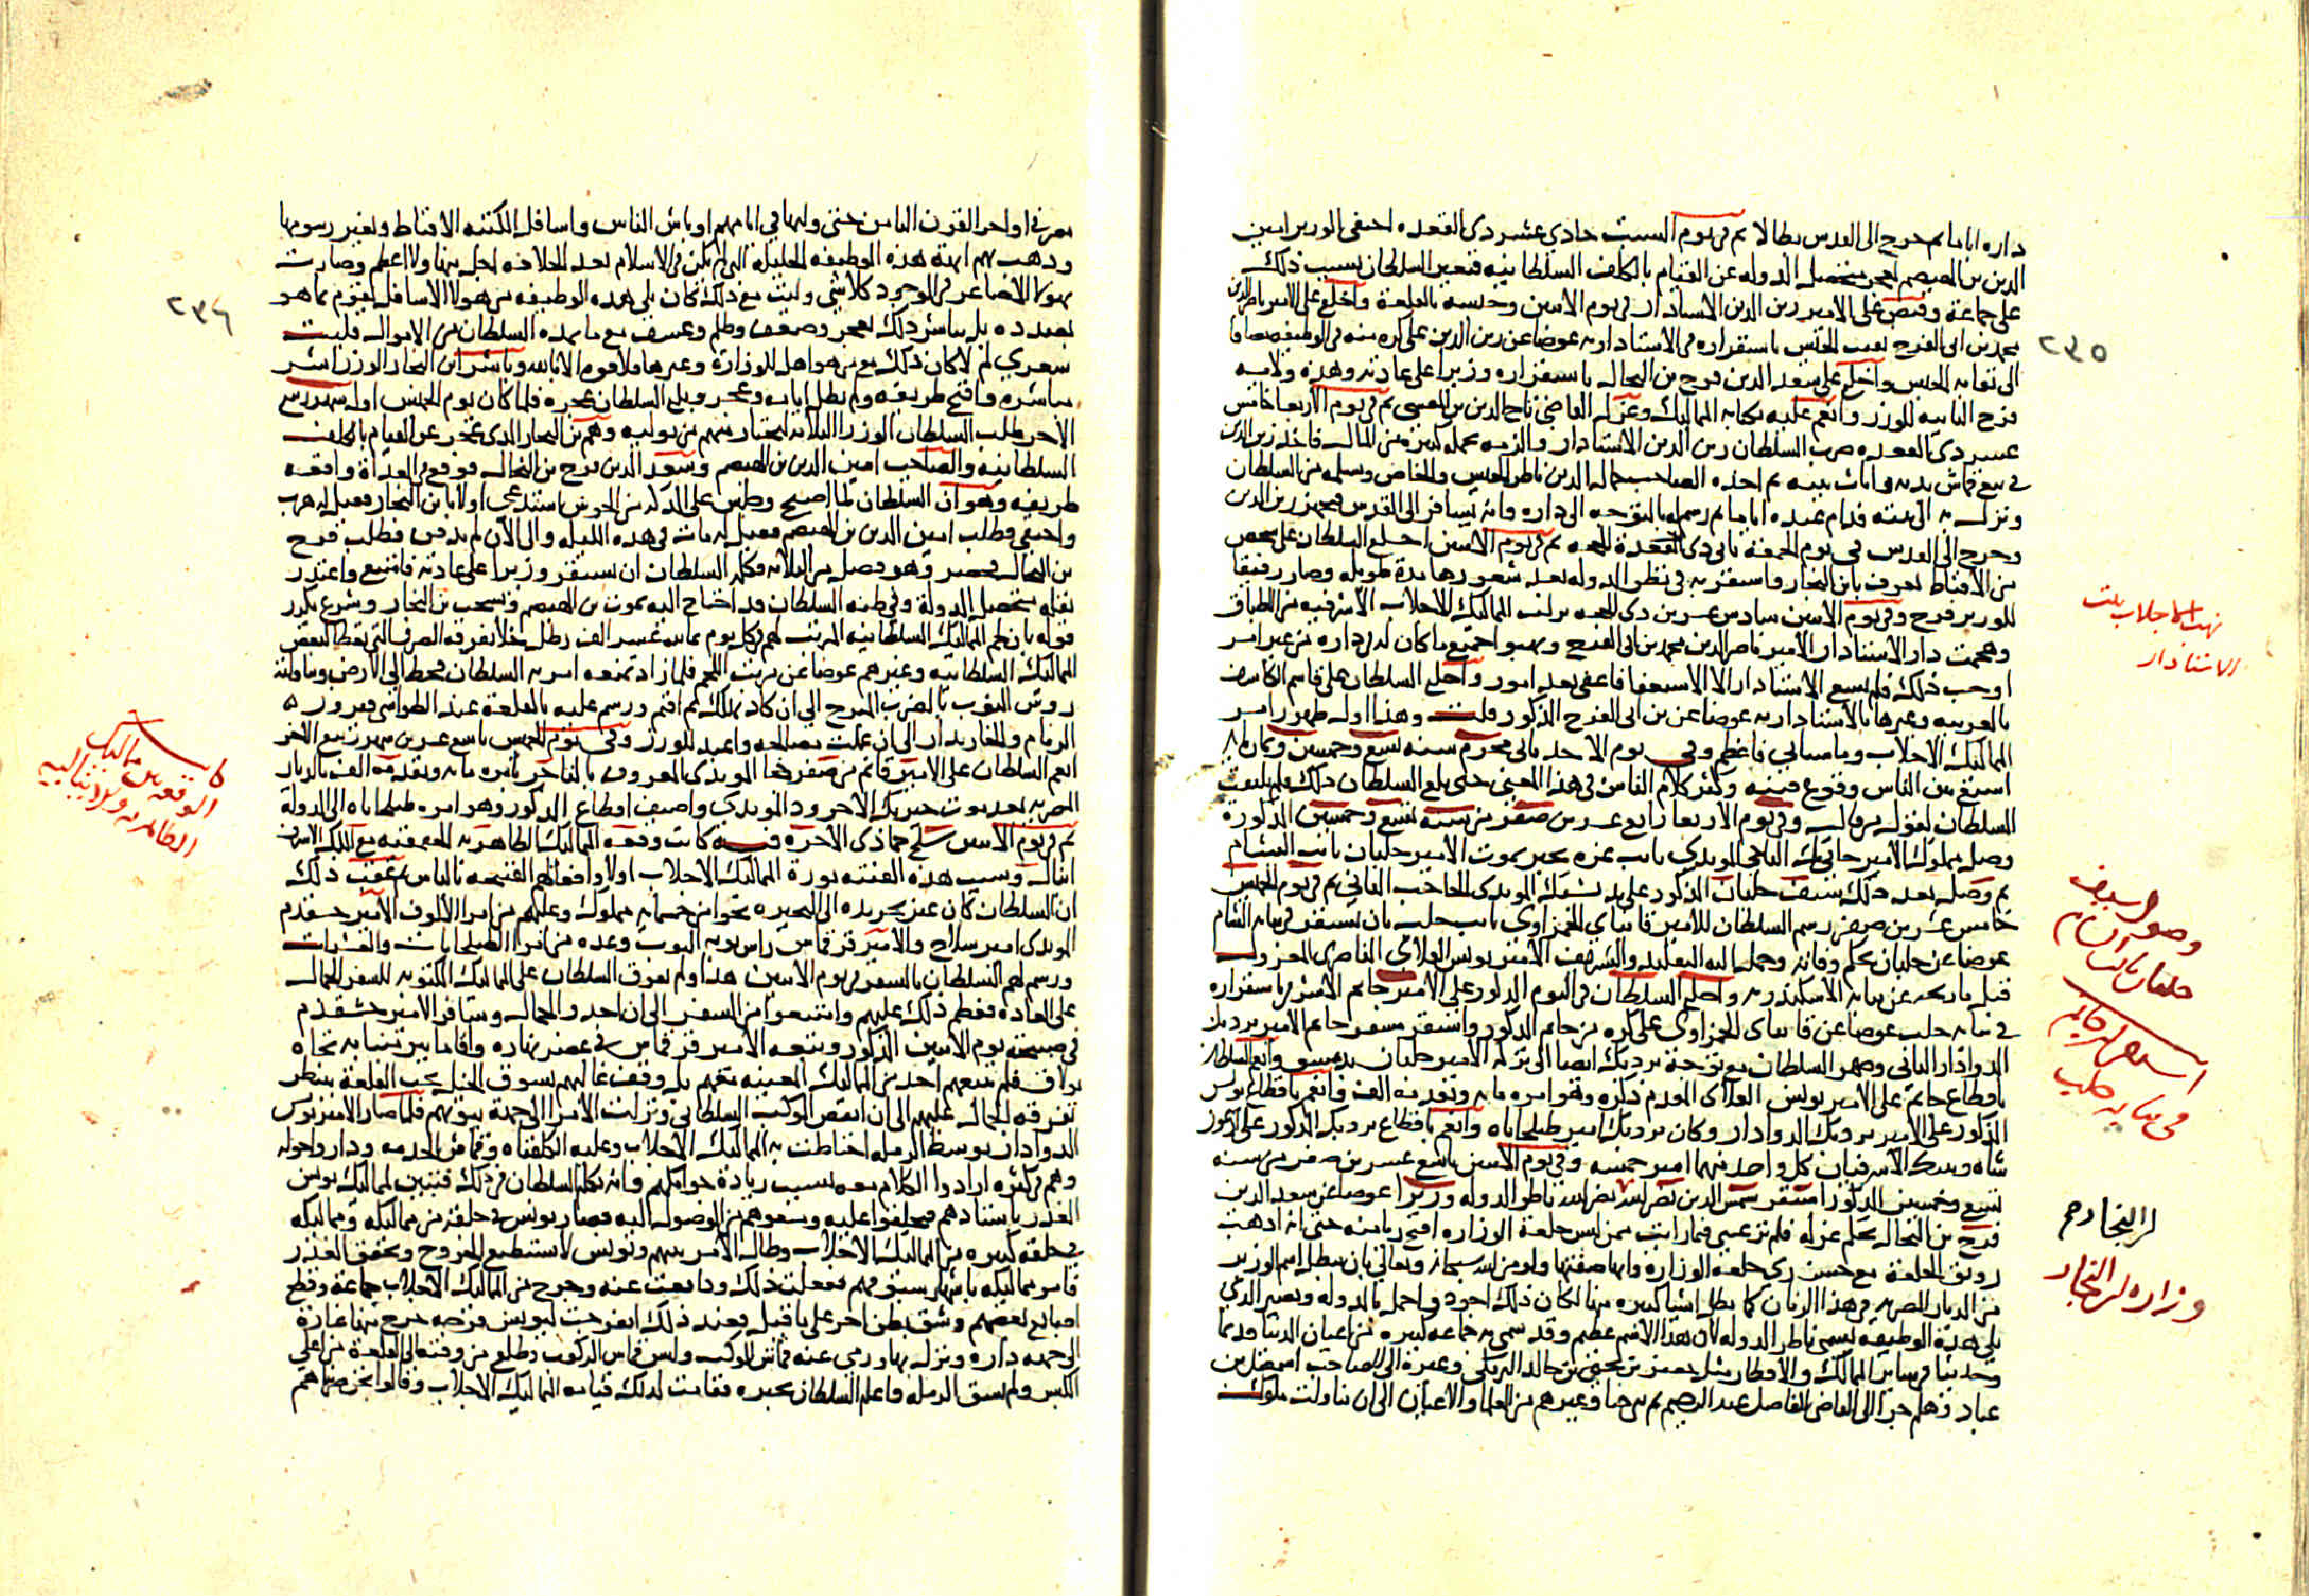 داره اياما ثم خرج الى القدس بطالا ثم فى يوم السبت حادى عشر ذى القعده اختفى الوزير امين
الدين بن الهيصم لعجز متحصل الدوله عن القيام بالكلف السلطانيه فتغير السلطان بسبب ذلك
على جماعة وقبض على الامير زين الدين الاستادار فى يوم الاثنين وحبسه بالقلعة واخلع على الامير ناصر الدين
محمد بن ابى الفرج نقيب الجيش باستقراره فى الاستاداريه عوضا عن زين الدين على كره منه فى الوظيفه مضافا
الى نقابه الجيش واخلع على سعد الدين فرج بن النحال باستقراره وزيرا على عادته وهذه ولايه
فرج الثانيه للوزر وانعم عليه بكتابه المماليك وعزل القاضى تاج الدين بن المقسى ثم فى يوم الاربعا خامس
عشر ذى القعده ضرب السلطان زين الدين الاستادار والزمه بحمله كبيره من المال فاخذ زين الدين
فى بيع قماش بدنه واثاث بيته ثم اخذه الصاحب جمال الدين ناظر الجيش والخاص وتسلمه من السلطان
ونزل به الى بيته فدام عنده اياما ثم رسم له بالتوجه الى داره وانه يسافر الى القدس فتجهز زين الدين
وخرج الى القدس فى يوم الجمعة ثانى ذى الحجه ثم فى يوم الاثنين اخلع السلطان على شخص
من الاقباط يعرف بابن النجار واستقر به فى نظر الدوله بعد شغورها مدة طويله وصار رفيقا
للوزير فرج وفى يوم الاثنين سادس عشرين ذى الحجه نزلت المماليك الاجلاب الاشرفيه من الطباق
وهجمت دار الاستادار الامير ناصر الدين محمد بن ابى الفرج ونهبوا جميع ما كان له فى داره من غير امر
اوجب ذلك فلم يسع الاستادار الا الاستعفا فاعفى بعد امور واخلع السلطان على قاسم الكاشف
بالغربيه وغيرها بالاستاداريه عوضا عن بن ابى الفرج المذكور قلت وهذا اول ظهور امر
المماليك الاجلاب وما سياتى فاعظم وفى يوم الاحد ثانى محرم سنه تسع وخمسين وثمان ماه
اشيع بين الناس وقوع فتنه وكثر كلام الناس فى هذا المعنى حتى بلغ السلطان ذلك فلم يلتفت
السلطان لقول من قال وفى يوم الاربعا رابع عشرين صفر من سنه تسع وخمسين المذكورة
وصل مملوك الامير جانى بك التاجى المويدى نايب غزه بخبر بموت الامير جلبان نايب الشام
ثم وصل بعد ذلك سيف جلبان المذكور على يد الحاجب الثانى ثم فى يوم الخميس
خامس عشرين صفر رسم السلطان للامير قانباى الحمزاوى نايب حلب بان يستقر فى نيابه الشام
عوضا عن جلبان بحكم وفاته وحمل اليه التقليد والتشريف الامير يونس العلائى الناصرى المعزول
قبل تاريخه عن نيابه الاسكندريه واخلع السلطان فى اليوم المذكور على الامير جانم الاشرفى باستقراره
فى نيابه حلب عوضا عن قانباى الحمزاوى على كره من جانم المذكور واستقر مسفر جانم الامير بردبك
الدوادار الثانى وصهر السلطان مع توجه بردبك ايضا الى تركه الامير جلبان بدمشق وانعم السلطان
باقطاع جانم على الامير يونس العلائى المقدم ذكره وهو امره مايه وتقدمه الف وانعم باقطاع يونس
المذكور على الامير بردبك الدوادار وكان بردبك امير طبلخاناه وانعم باقطاع بردبك المذكور على
شاه الاشرفيان كل واحد منهما امير خمسه وفى يوم الاثنين تاسع عشرين صفر من سنه
تسع وخمسين المذكور استقر شمس الدين نصر الله ناظر الدوله وزيرا عوضا عن سعد الدين
فرج بن النحال بحكم عزله فلم تر عينى فيما رايت ممن لبس خلعة الوزاره اقبح زيا منه حتى انه اذهب
رونق الخلعة مع حسن زى خلعه الوزارة وابهه صفتها ولو من الله سبحانه وتعالى بان يبطل اسم الوزير
من الديار المصريه فى هذا الزمان كما بطل اشيا كثيره منها لكان ذلك اجود واجمل بالدوله ويصير الذى
يلى هذه الوظيفه يسمى ناظر الدوله لان هذا الاسم عظيم وقد سمى به جماعه كبيره من اعيان الدنيا قديما
وحديثا فى ساير الممالك والاقطار مثل جعفر بن يحيى بن خالد البرمكى وغيره الى الصاحب اسمعيل بن
عباد وهلم جرا الى القاضى الفاضل عبد الرحيم ثم بنى حنا وغيرهم من العلما والاعيان الى ان تناولت ملوك
٢٣٥
نهب الاجلاب بيت
الاستادار
وصول سيف
جلبان نايب الشام
استقرار جانم
فى نيابه حلب
ابن النجار
وزاره ابن النجار
مصر فى اواخر القرن الثامن حتى وليها فى ايامهم اوباش الناس واسافل الكتبه الاقباط وتغير رسومها
وذهب بهم ابهة هذه الوظيفه الجليله التى لم يكن فى الاسلام بعد الخلافه اجل منها ولا اعظم وصارت
بهولا الاصاغر فى الوجود كلاشى وليت مع ذلك كان يلى هذه الوظيفه من هولا الاسافل يقوم بما هو
بصدده بل يباشر ذلك بعجز وضعف وظلم وعسف مع ما يمده السلطان من الاموال فليت
شعرى لم لا كان ذلك مع من هو اهل للوزارة وغيرها فلا قوه الا بالله وباشر ابن النجار الوزر اشر
مباشره واقبح طريقه ولم يطل ايامه وعجز وبلغ السلطان عجزه فلما كان يوم الخميس اول شهر ربيع
الاخر طلب السلطان الوزرا الثلاثه ليختار منهم من يوليه وهم بن النجار الذى عجز عن القيام بالكلف
السلطانيه والصاحب امين الدين بن الهيصم وسعد الدين فرج بن النحال فوقع فى الغداة واقعه
ظريفه وهو ان السلطان لما اصبح وجلس على الدكه من الحوش استدعى اولا بابن النجار فقيل له هرب
واختفى وطلب امين الدين بن الهيصم فقيل له مات فى هذه الليله والى الان لم يدفن فطلب فرج
بن النحال فحضر وهو فضل من الثلاثه فكلمه السلطان ان يستقر وزيرا على عادته فامتنع واعتذر
بقله متحصل الدولة وفى ظنه السلطان قد احتاج اليه بموت بن الهيصم وتسحب بن النجار وشرع يكرر
قوله بان لحم المماليك السلطانيه المرتب لهم فى كل يوم ثمانيه عشر الف رطل خلا تفرقه الصرر التى يعطا لبعض
المماليك السلطانيه وغيرهم عوضا عن مرتب اللحم فلما زاد تمنعه امر به السلطان فحط الى الارض وتناولته
روس النوب بالضرب المبرح الى ان كاد يهلك ثم اقيم ورسم عليه بالقلعة عند الطواشى فيروز
الزمام والخازندار الى ان عملت مصالحه واعيد للوزر وفى يوم الخميس تاسع عشرين شهر ربيع الاخر
انعم السلطان على الامير قانم من صفر خجا المويدى المعروف بالتاجر بامره مايه وتقدمه الف بالديار
المصريه بعد موت خيربك الاجرود المويدى واضيف اقطاع المذكور وهو امره طبلخاناه الى الدولة
ثم فى يوم الاثنين سلخ جمادى الاخره فيه كانت وقعه المماليك الظاهريه الجقمقيه مع الملك الاشرف
اينال وسبب هذه الفتنه ثورة المماليك الاجلاب اولا وافعالهم القبيحه بالناس ثم عقب ذلك
ان السلطان كان عين تجريده الى البحيره نحوا من خمسمايه مملوك وعليهم من امرا الالوف الامير خشقدم
المويدى امير سلاح والامير قرقماس راس نوبه النوب وعده من امرا الطبلخانات والعشرات
ورسم لهم السلطان بالسفر فى يوم الاثنين هذا ولم يفرق السلطان على المماليك المكتوبه للسفر الجمال
على العاده فعظم ذلك عليهم وامتنعوا من السفر الى ان اخذوا الجمال وسافر الامير خشقدم
فى صبيحه يوم الاثنين المذكور وتبعه الامير قرقماس فى عصر نهاره واقاما ببر منبابه تجاه
بولاق فلم يتبعهم احد من المماليك المعينه معهم بل وقف غالبهم بسوق الخيل تحت القلعة ينتظر
تفرقه الجمال عليهم الى ان انفض الموكب السلطانى ونزلت الامرا الى جهة بيوتهم فلما صار الامير يونس
الدوادار بوسط الرمله احتاطت به المماليك الاجلاب وعليه الكلفتاه وقماش الخدمه ودار واحوله
وهم فى كثره ارادوا الكلام معه بسبب زيادة جوامكهم وانه يكلم السلطان فى ذلك فتبين لمماليك يونس
الغدر باستادهم فتحلقوا عليه ومنعوهم من الوصول اليه فصار يونس فى حلقه من مماليكه ومماليكه
فى حلقه كبيره من المماليك الاجلاب وطال الامر بينهم ويونس لا يستطيع الخروج وتحقق الغدر
فامر مماليكه باشهار سيوفهم ففعلت ذلك ودافعت عنه وجرح من المماليك الاجلاب جماعة وقطع
اصابع بعضهم وشق بطن اخر على ما قيل فعند ذلك انفرجت ليونس فرجه خرج منها غارة
الى جهه داره ونزل بها ورمى عنه قماش الموكب ولبس قماش الركوب وطلع من وقته الى القلعة من اعلى
الكبش ولم يشق الرمله واعلم السلطان بخبره فقامت لذلك قيامه المماليك الاجلاب وقالوا نحن ضربناهم
٢٣٤
كاينه
الوقعه بين مماليك
الظاهريه والاينالية